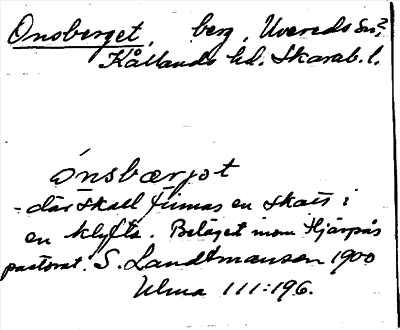 Onsberget, berg, Uvereds sn?
Kållands hd. Skarab. l.
ònsbærjət
- där skall finnas en skatt i
en klyfta. Beläget inom Hjärpås
pastorat. S. Landtmanson 1900
Ulma 111:196.